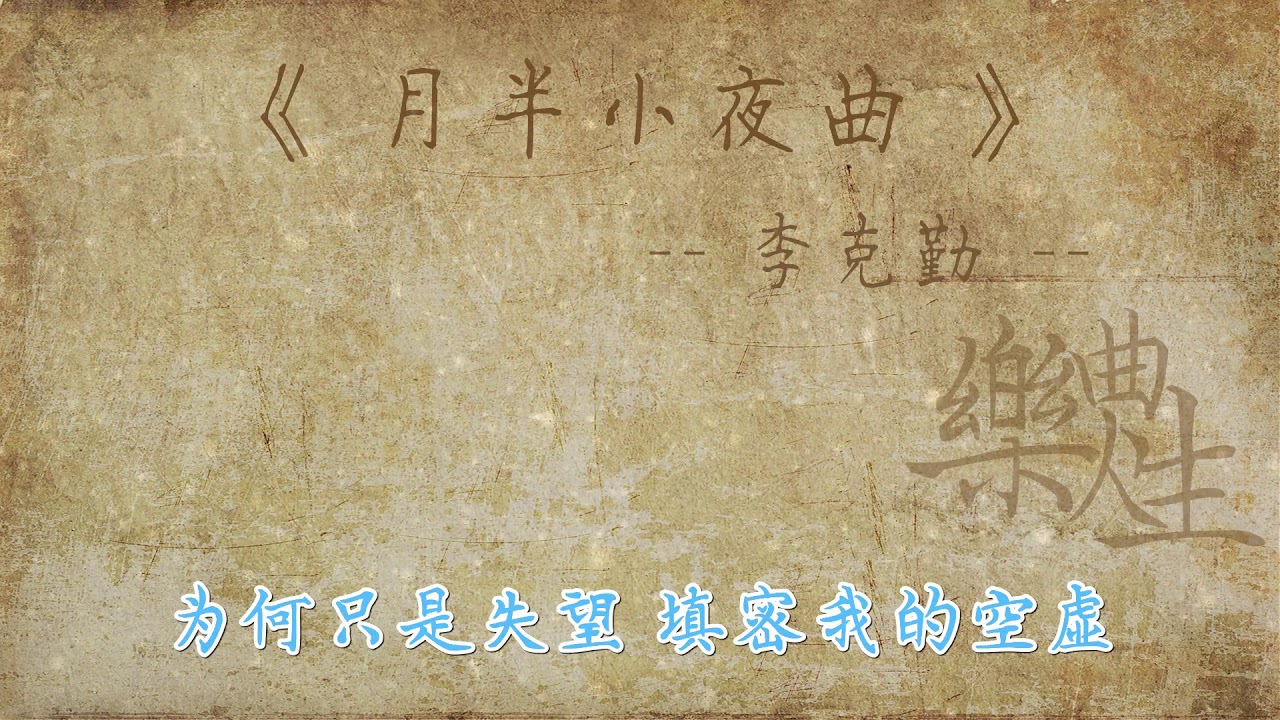 《 月半小夜曲 》
-- 李克勤 --
樂曲人生
为何只是失望 填密我的空虚